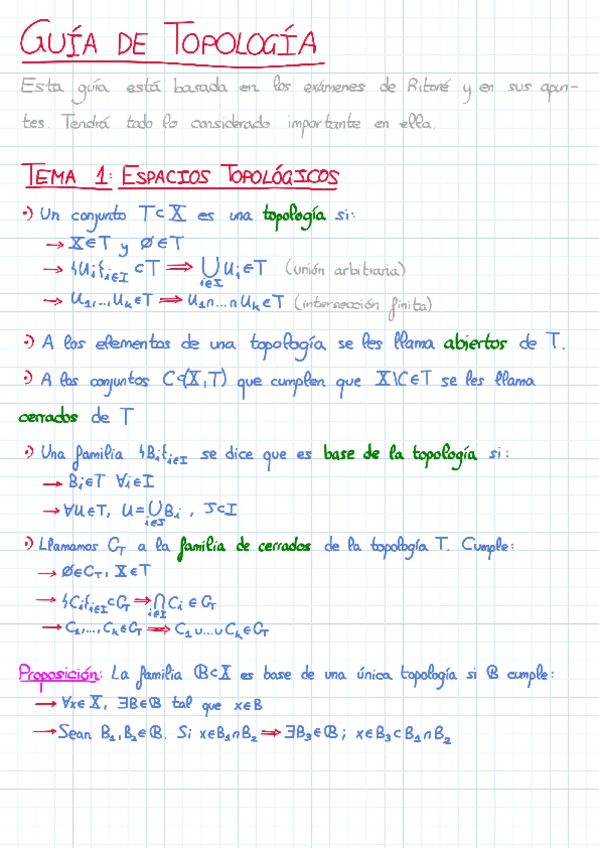 GUÍA DE TOPOLOGÍA
Esta guía está basada en los exámenes de Ritoré y en sus apun-
tes. Tendrá todo lo considerado importante en ella.
TEMA 1: ESPACIOS TOPOLÓGICOS
·) Un conjunto T⊂X es una topología si:
→ X∈T y ∅∈T
→ {Ui}i∈I ⊂T ⇒ ⋃i∈I Ui∈T (unión arbitraria)
→ U1,...,Uk∈T ⇒ U1∩...∩Uk∈T (intersección finita)
·) A los elementos de una topología se les llama abiertos de T.
·) A los conjuntos C⊂(X,T) que cumplen que X\C∈T se les llama
cerrados de T
·) Una familia {Bi}i∈I se dice que es base de la topología si:
→ Bi∈T ∀i∈I
→ ∀U∈T, U=⋃i∈J Bi , J⊂I
·) Llamamos CT a la familia de cerrados de la topología T. Cumple:
→ ∅∈CT, X∈T
→ {Ci}i∈I⊂CT ⇒ ⋂i∈I Ci ∈ CT
→ C1,...,Ck∈CT ⇒ C1∪...∪Ck∈CT
Proposición: La familia B⊂X es base de una única topología si B cumple:
→ ∀x∈X, ∃B∈B tal que x∈B
→ Sean B1,B2∈B. Si x∈B1∩B2 ⇒ ∃B3∈B; x∈B3⊂B1∩B2